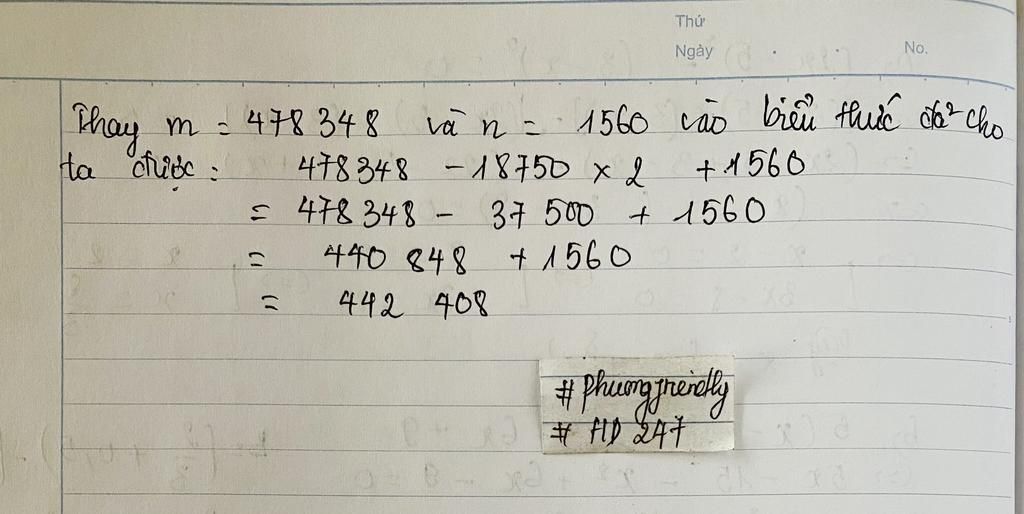 Thứ
Ngày . . No.
Thay m = 478 348 và n = 1560 vào biểu thức đã cho
ta được: 478 348 - 18750 x 2 + 1560
= 478 348 - 37 500 + 1560
= 440 848 + 1560
= 442 408
# phuongfriendly
# HD 247